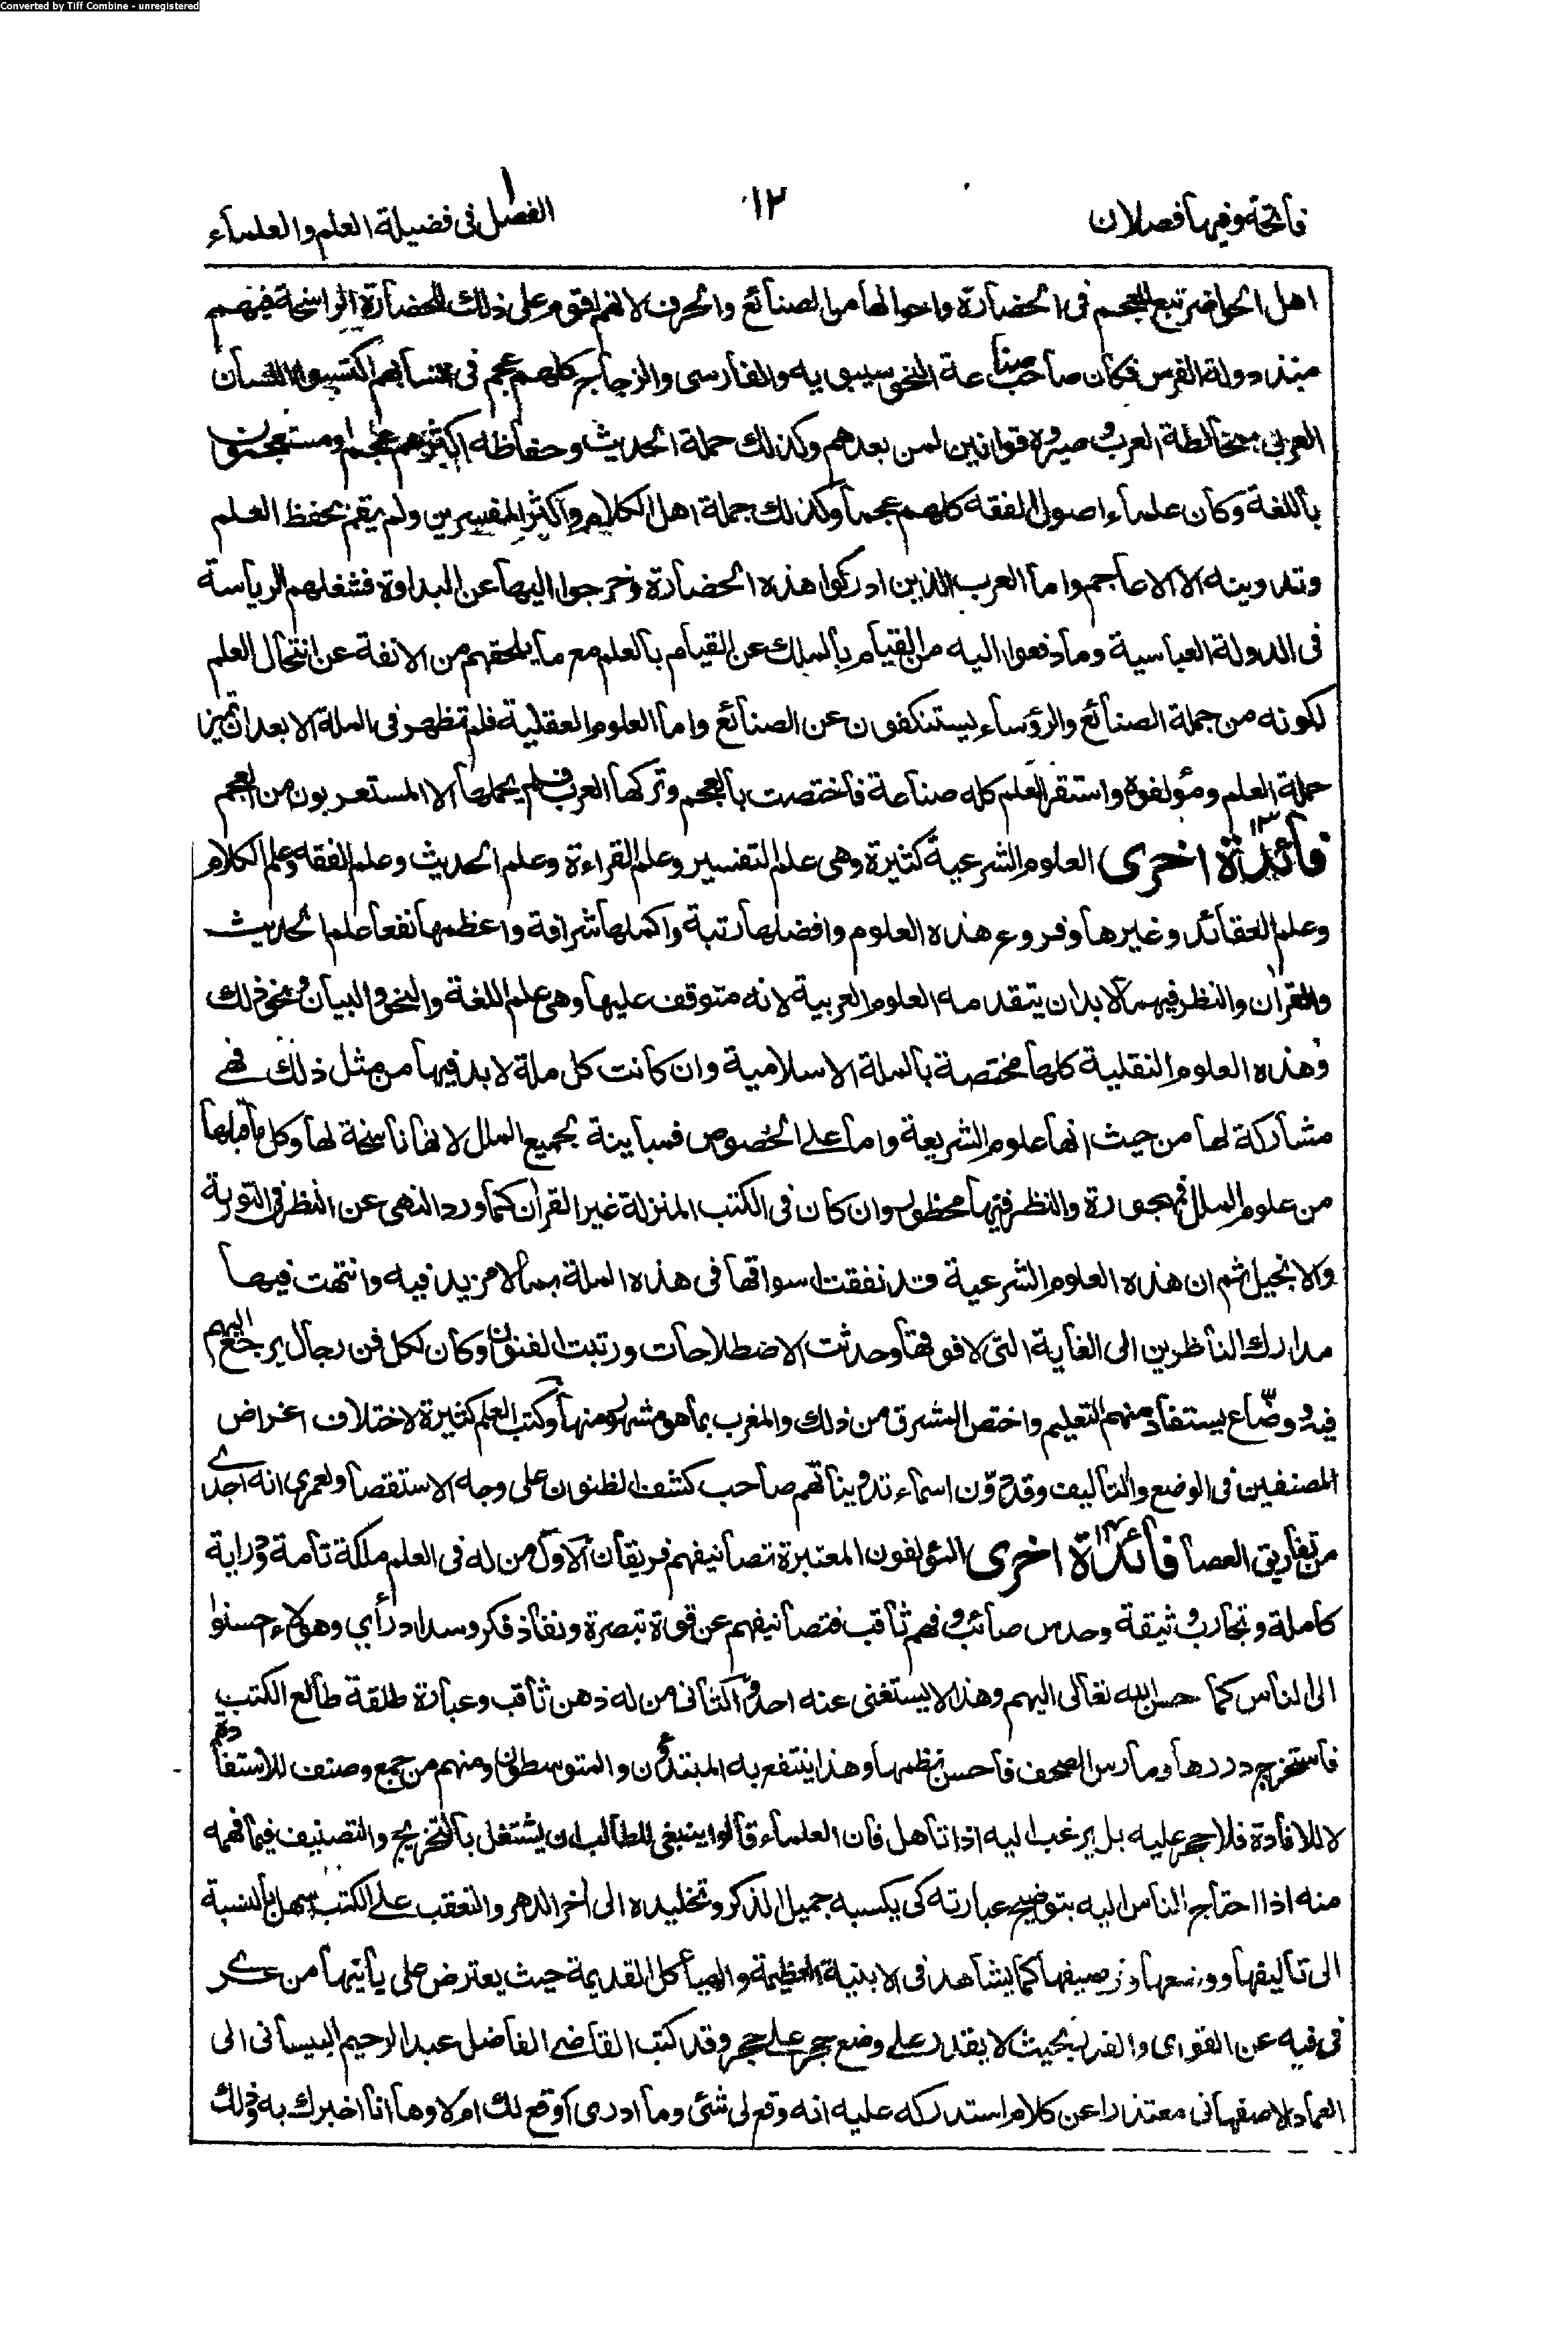 Converted by Tiff Combine - unregistered
فاتحة وفيها فصلان ١٢ الفصل ١ في فضيلة العلم والعلماء
اهل الحواضر تبع للعجم في الحضارة واحوالها من الصنائع والحرف لانهم اقوم على ذلك للحضارة الراسخة فيهم
منذ دولة الفرس فكان صاحب صناعة النحو سيبويه والفارسي والزجاج كلهم عجم في انسابهم اكتسبوا اللسان
العربي بمخالطة العرب وصيروه قوانين لمن بعدهم وكذلك حملة الحديث وحفاظه اكثرهم عجم او مستعجمون
باللغة وكان علماء اصول الفقه كلهم عجما وكذلك جملة اهل الكلام واكثر المفسرين ولم يقم بحفظ العلم
وتدوينه الا الاعاجم واما العرب الذين ادركوا هذه الحضارة وخرجوا اليها عن البداوة فشغلهم الرياسة
في الدولة العباسية وما دفعوا اليه من القيام بالملك عن القيام بالعلم مع ما يلحقهم من الانفة عن انتحال العلم
لكونه من جملة الصنائع والرؤساء يستنكفون عن الصنائع واما العلوم العقلية فلم تظهر في الملة الا بعد ان تميز
حملة العلم ومؤلفوه واستقر العلم كله صناعة فاختصت بالعجم وتركها العرب فلم يحملها الا المستعربون من العجم
فائدة اخرى ١٣ العلوم الشرعية كثيرة وهي علم التفسير وعلم القراءة وعلم الحديث وعلم الفقه وعلم الكلام
وعلم العقائد وغيرها وفروع هذه العلوم وافضلها رتبة واكملها شرافة واعظمها نفعا علم الحديث
والقرآن والنظر فيهما لا بد ان يتقدمه العلوم العربية لانه متوقف عليها وهي علم اللغة والنحو والبيان ونحو ذلك
وهذه العلوم النقلية كلها مختصة بالملة الاسلامية وان كانت كل ملة لا بد فيها من مثل ذلك فهي
مشاركة لها من حيث انها علوم الشريعة واما على الخصوص فمباينة لجميع الملل لانها ناسخة لها وكل ما قبلها
من علوم الملل فمهجورة والنظر فيها محظور وان كان في الكتب المنزلة غير القرآن كما ورد النهي عن النظر في التورية
والانجيل ثم ان هذه العلوم الشرعية قد نفقت اسواقها في هذه الملة بما لا مزيد فيه وانتهت فيها
مدارك الناظرين الى الغاية التي لا فوقها وحدثت الاصطلاحات ورتبت الفنون وكان لكل فن رجال يرجع اليهم
فيه ووضاع يستفاد منهم التعليم واختص المشرق من ذلك والمغرب بما هو مشهور منها وكتب العلم كثيرة لاختلاف اغراض
المصنفين في الوضع والتأليف وقد دوّن اسماء تدويناتهم صاحب كشف الظنون على وجه الاستقصا ولعمري انه اجدى
من تفاريق العصا فائدة اخرى ١٤ المؤلفون المعتبرة تصانيفهم فريقان الاول من له في العلم ملكة تامة ودراية
كاملة وتجارب وثيقة وحدس صائب وفهم ثاقب فتصانيفهم عن قوة تبصرة ونفاذ فكر وسداد رأي وهؤلاء احسنوا
الى الناس كما احسن الله تعالى اليهم وهذا لا يستغني عنه احد والثاني من له ذهن ثاقب وعبارة طلقة طالع الكتب
فاستخرج دررها ومارس الصحف فاحسن نظمها وهذا ينتفع به المبتدؤن والمتوسطون ومنهم من جمع وصنف للاستفادة
لا للافادة فلا حجر عليه بل يرغب اليه اذا تاهل فان العلماء قالوا ينبغي للطالب ان يشتغل بالتخريج والتصنيف فيما فهمه
منه اذا احتاج الناس اليه بتوضيح عبارته كي يكسبه جميل الذكر وتخليده الى آخر الدهر والتعقب على الكتب سهل بالنسبة
الى تأليفها ووضعها وترصيفها كما يشاهد في الابنية العظيمة والهياكل القديمة حيث يعترض على بانيها من عرى
في فيه عن القوى والقدر بحيث لا يقدر على وضع حجر على حجر وقد كتب القاضي الفاضل عبد الرحيم البيساني الى
العماد الاصفهاني معتذرا عن كلام استدركه عليه انه وقع لي شئ وما ادري أوقع لك ام لا وها انا اخبرك به وذلك